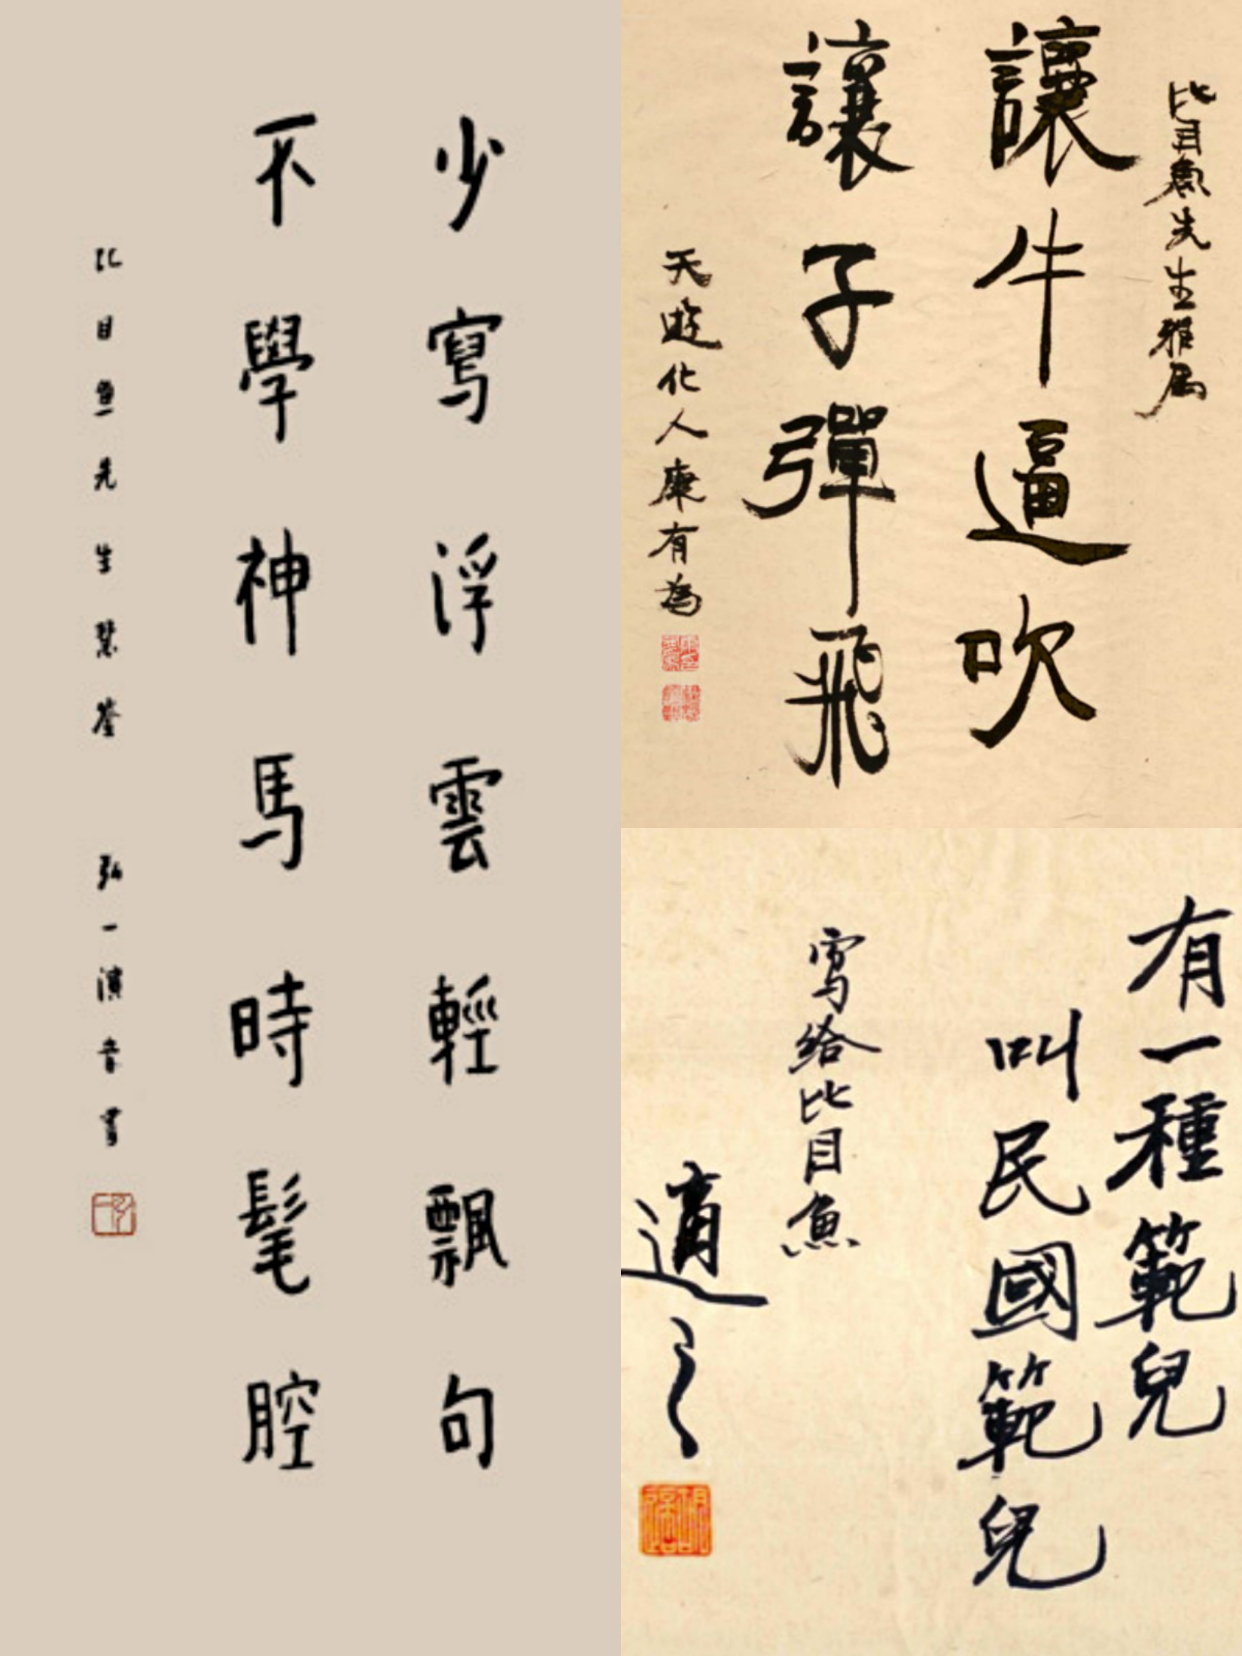 少寫浮雲輕飄句
不學神馬時髦腔
比目魚先生慧鉴
弘一演音書
比目魚先生雅屬
讓牛逼吹
讓子彈飛
天遊化人康有為
有一種範兒
叫民國範兒
寫给比目魚
適之